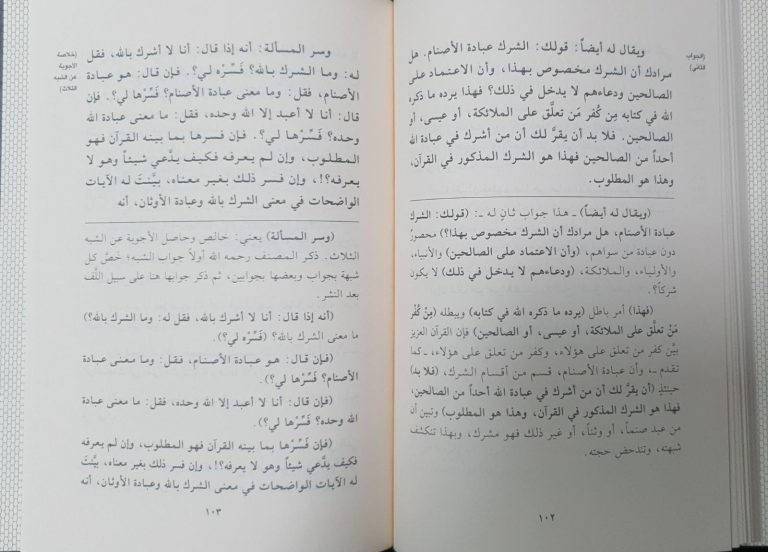 (الجواب
الثاني)
ويقال له أيضاً: قولك: الشرك عبادة الأصنام. هل
مرادك أن الشرك مخصوص بهذا، وأن الاعتماد على
الصالحين ودعاءهم لا يدخل في ذلك؟ فهذا يرده ما ذكره
الله في كتابه مِن كُفر مَن تعلَّق على الملائكة، أو عيسى، أو
الصالحين. فلا بد أن يقرَّ لك أن من أشرك في عبادة الله
أحداً من الصالحين فهذا هو الشرك المذكور في القرآن،
وهذا هو المطلوب.
(ويقال له أيضاً) ـ هذا جواب ثانٍ له ـ: (قولك: الشرك
عبادة الأصنام، هل مرادك أن الشرك مخصوص بهذا؟) محصورٌ
دون عبادة من سواهم، (وأن الاعتماد على الصالحين) والأنبياء،
والأولياء، والملائكة، (ودعاءهم لا يدخل في ذلك) لا يكون
شركاً؟.
(فهذا) أمر باطل (يرده ما ذكره الله في كتابه) ويبطله (مِنْ كُفْر
مَنْ تعلَّق على الملائكة، أو عيسى، أو الصالحين) فإن القرآن العزيز
بيَّن كفر من تعلق على هؤلاء، وكفر من تعلق على هؤلاء، ـ كما
تقدم ـ، وأن عبادة الأصنام، قسم من أقسام الشرك، (فلا بد)
حينئذٍ (أن يقرَّ لك أن من أشرك في عبادة الله أحداً من الصالحين،
فهذا هو الشرك المذكور في القرآن، وهذا هو المطلوب) وتبين أن
من عبد صنماً، أو وثناً، أو غير ذلك فهو مشرك، وبهذا تنكشف
شبهته، وتندحض حجته.
١٠٢
(خلاصة
الأجوبة
عن الشبه
الثلاث)
وسر المسألة: أنه إذا قال: أنا لا أشرك بالله، فقل
له: وما الشرك بالله؟ فَسِّرْه لي؟. فإن قال: هو عبادة
الأصنام، فقل: وما معنى عبادة الأصنام؟ فَسِّرْها لي؟. فإن
قال: أنا لا أعبد إلا الله وحده، فقل: ما معنى عبادة الله
وحده؟ فَسِّرْها لي؟. فإن فسرها بما بينه القرآن فهو
المطلوب، وإن لم يعرفه فكيف يدَّعي شيئاً وهو لا
يعرفه؟!، وإن فسر ذلك بغير معناه، بيَّنتَ له الآيات
الواضحات في معنى الشرك بالله وعبادة الأوثان، أنه
(وسر المسألة) يعني: خالص وحاصل الأجوبة عن الشبه
الثلاث. ذكر المصنف رحمه الله أولاً جواب الشبه؛ خصَّ كل
شبهة بجواب وبعضها بجوابين، ثم ذكر جوابها هنا على سبيل اللَّف
بعد النشر.
(أنه إذا قال: أنا لا أشرك بالله، فقل له: وما الشرك بالله؟)
ما معنى الشرك بالله؟ (فَسِّرْه لي؟).
(فإن قال: هو عبادة الأصنام، فقل: وما معنى عبادة
الأصنام؟ فَسِّرْها لي؟).
(فإن قال: أنا لا أعبد إلا الله وحده، فقل: ما معنى عبادة
الله وحده؟ فَسِّرْها لي؟).
(فإن فَسَّرَها بما بينه القرآن فهو المطلوب، وإن لم يعرفه
فكيف يدَّعي شيئاً وهو لا يعرفه؟!، وإن فسر ذلك بغير معناه، بيَّنتَ
له الآيات الواضحات في معنى الشرك بالله وعبادة الأوثان، أنه
١٠٣